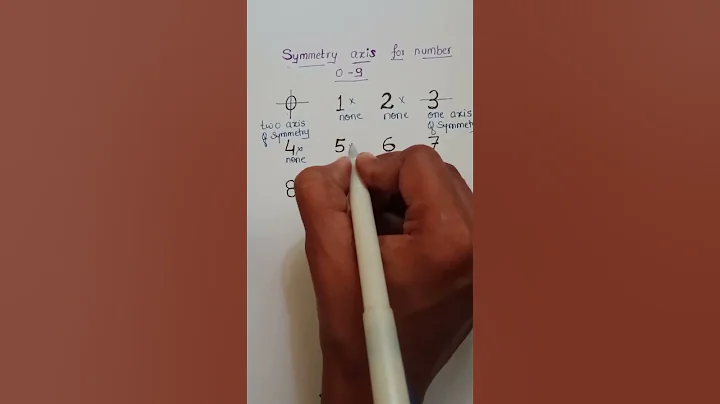 Symmetry axis for number
0-9
0 1 x 2 x 3
none none one axis
two axis of Symmetry
of Symmetry
4 x 5 6 7
none
8